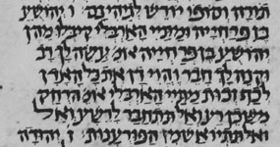 תורה וסופו יורש גיהינם ו יהושע
בן פרחייה ומתיי הארבלי קיבלו מהן
יהושע בן פרחייה אומ עשה לך רב
וקנה לך חבר והוי דן את כל האדם
לכף זכות מתיי הארבלי אומ הרחק
משכן רע ואל תתחבר לרשע ואל
ואל תתייאש מן הפורענות ז יהודה